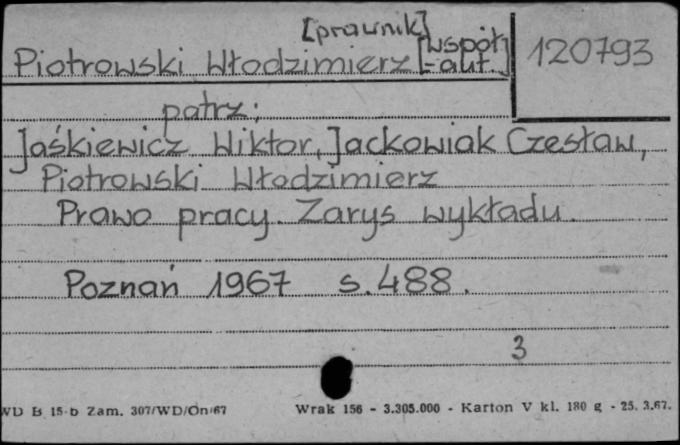 [prawnik]
Piotrowski Włodzimierz [współ-aut.]
120793
patrz:
Jaśkiewicz Wiktor, Jackowiak Czesław,
Piotrowski Włodzimierz
Prawo pracy. Zarys wykładu.
Poznań 1967 s. 488.
3
WD B 15-b Zam. 307/WD/On/67 Wrak 156 - 3.305.000 - Karton V kl. 180 g - 25. 3.67.